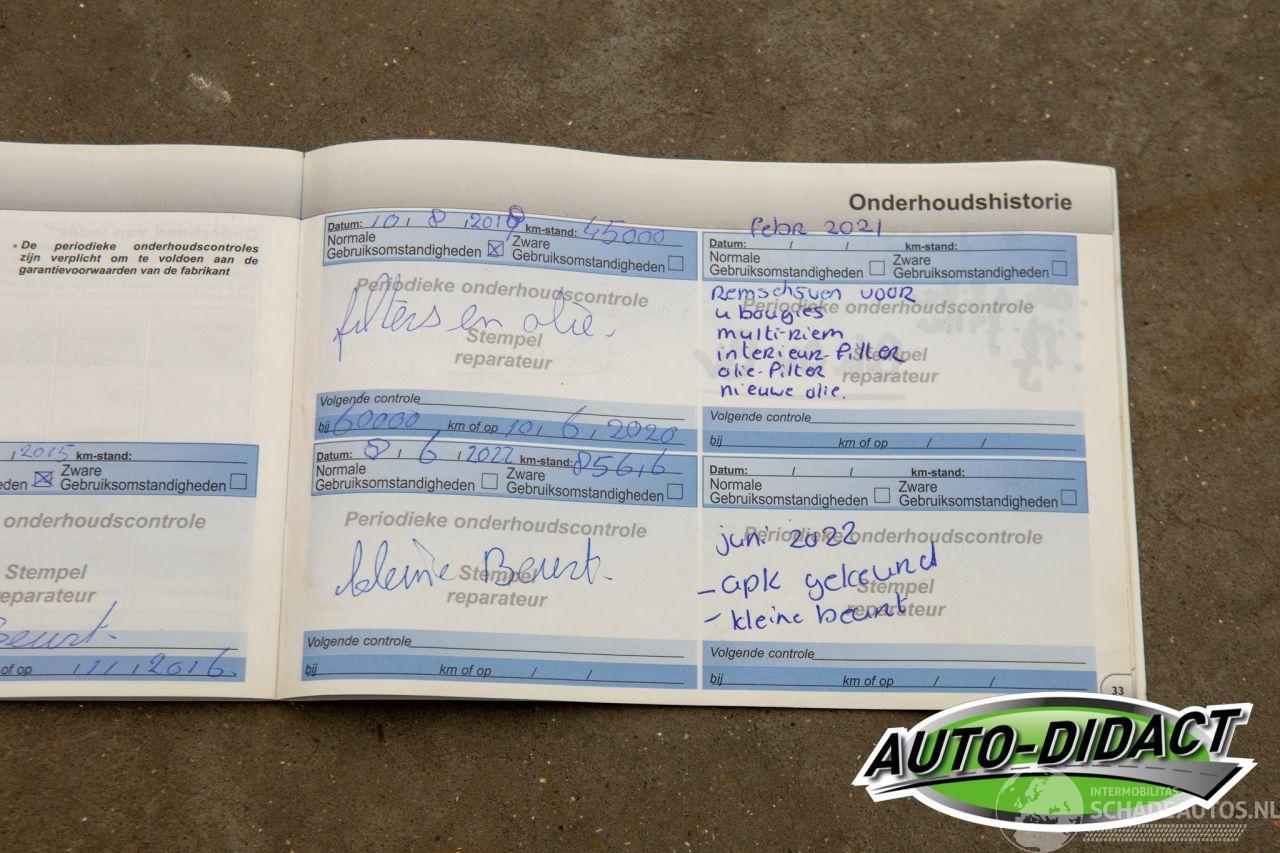 Onderhoudshistorie
• De periodieke onderhoudscontroles
zijn verplicht om te voldoen aan de
garantievoorwaarden van de fabrikant
, 2015 km-stand:
eden ☒ Zware
Gebruiksomstandigheden ☐
onderhoudscontrole
Stempel
reparateur
Beurt.
of op 1 / 1 / 2016.
Datum: 10 / 8 / 2019 km-stand: 45000
Normale
Gebruiksomstandigheden ☒ Zware
Gebruiksomstandigheden ☐
Periodieke onderhoudscontrole
filters en olie.
Stempel
reparateur
Volgende controle
bij 60000 km of op 10 / 6 / 2020
febr 2021
Datum: / / km-stand:
Normale
Gebruiksomstandigheden ☐ Zware
Gebruiksomstandigheden ☐
Periodieke onderhoudscontrole
Remschijven voor
u bougies
multi-riem
interieur-filter
olie-filter
nieuwe olie.
Stempel
reparateur
Volgende controle
bij km of op / /
Datum: 8 / 6 / 2022 km-stand: 856,6
Normale
Gebruiksomstandigheden ☐ Zware
Gebruiksomstandigheden ☐
Periodieke onderhoudscontrole
kleine Beurt.
Stempel
reparateur
Volgende controle
bij km of op / /
Datum: / / km-stand:
Normale
Gebruiksomstandigheden ☐ Zware
Gebruiksomstandigheden ☐
Periodieke onderhoudscontrole
juni 2022
- apk gekeurd
- kleine beurt
Stempel
reparateur
Volgende controle
bij km of op / /
33
AUTO-DIDACT
INTERMOBILITAS
SCHADEAUTOS.NL